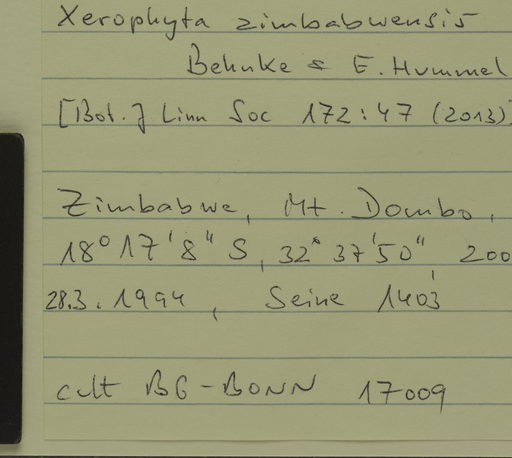 Xerophyta zimbabwensis
Behnke & E. Hummel
[Bot.] Linn Soc 172:47 (2013)
Zimbabwe, Mt. Dombo,
18° 17' 8" S, 32° 37' 50" 200
28.3.1994, Seine 1403
cult BG-BONN 17009